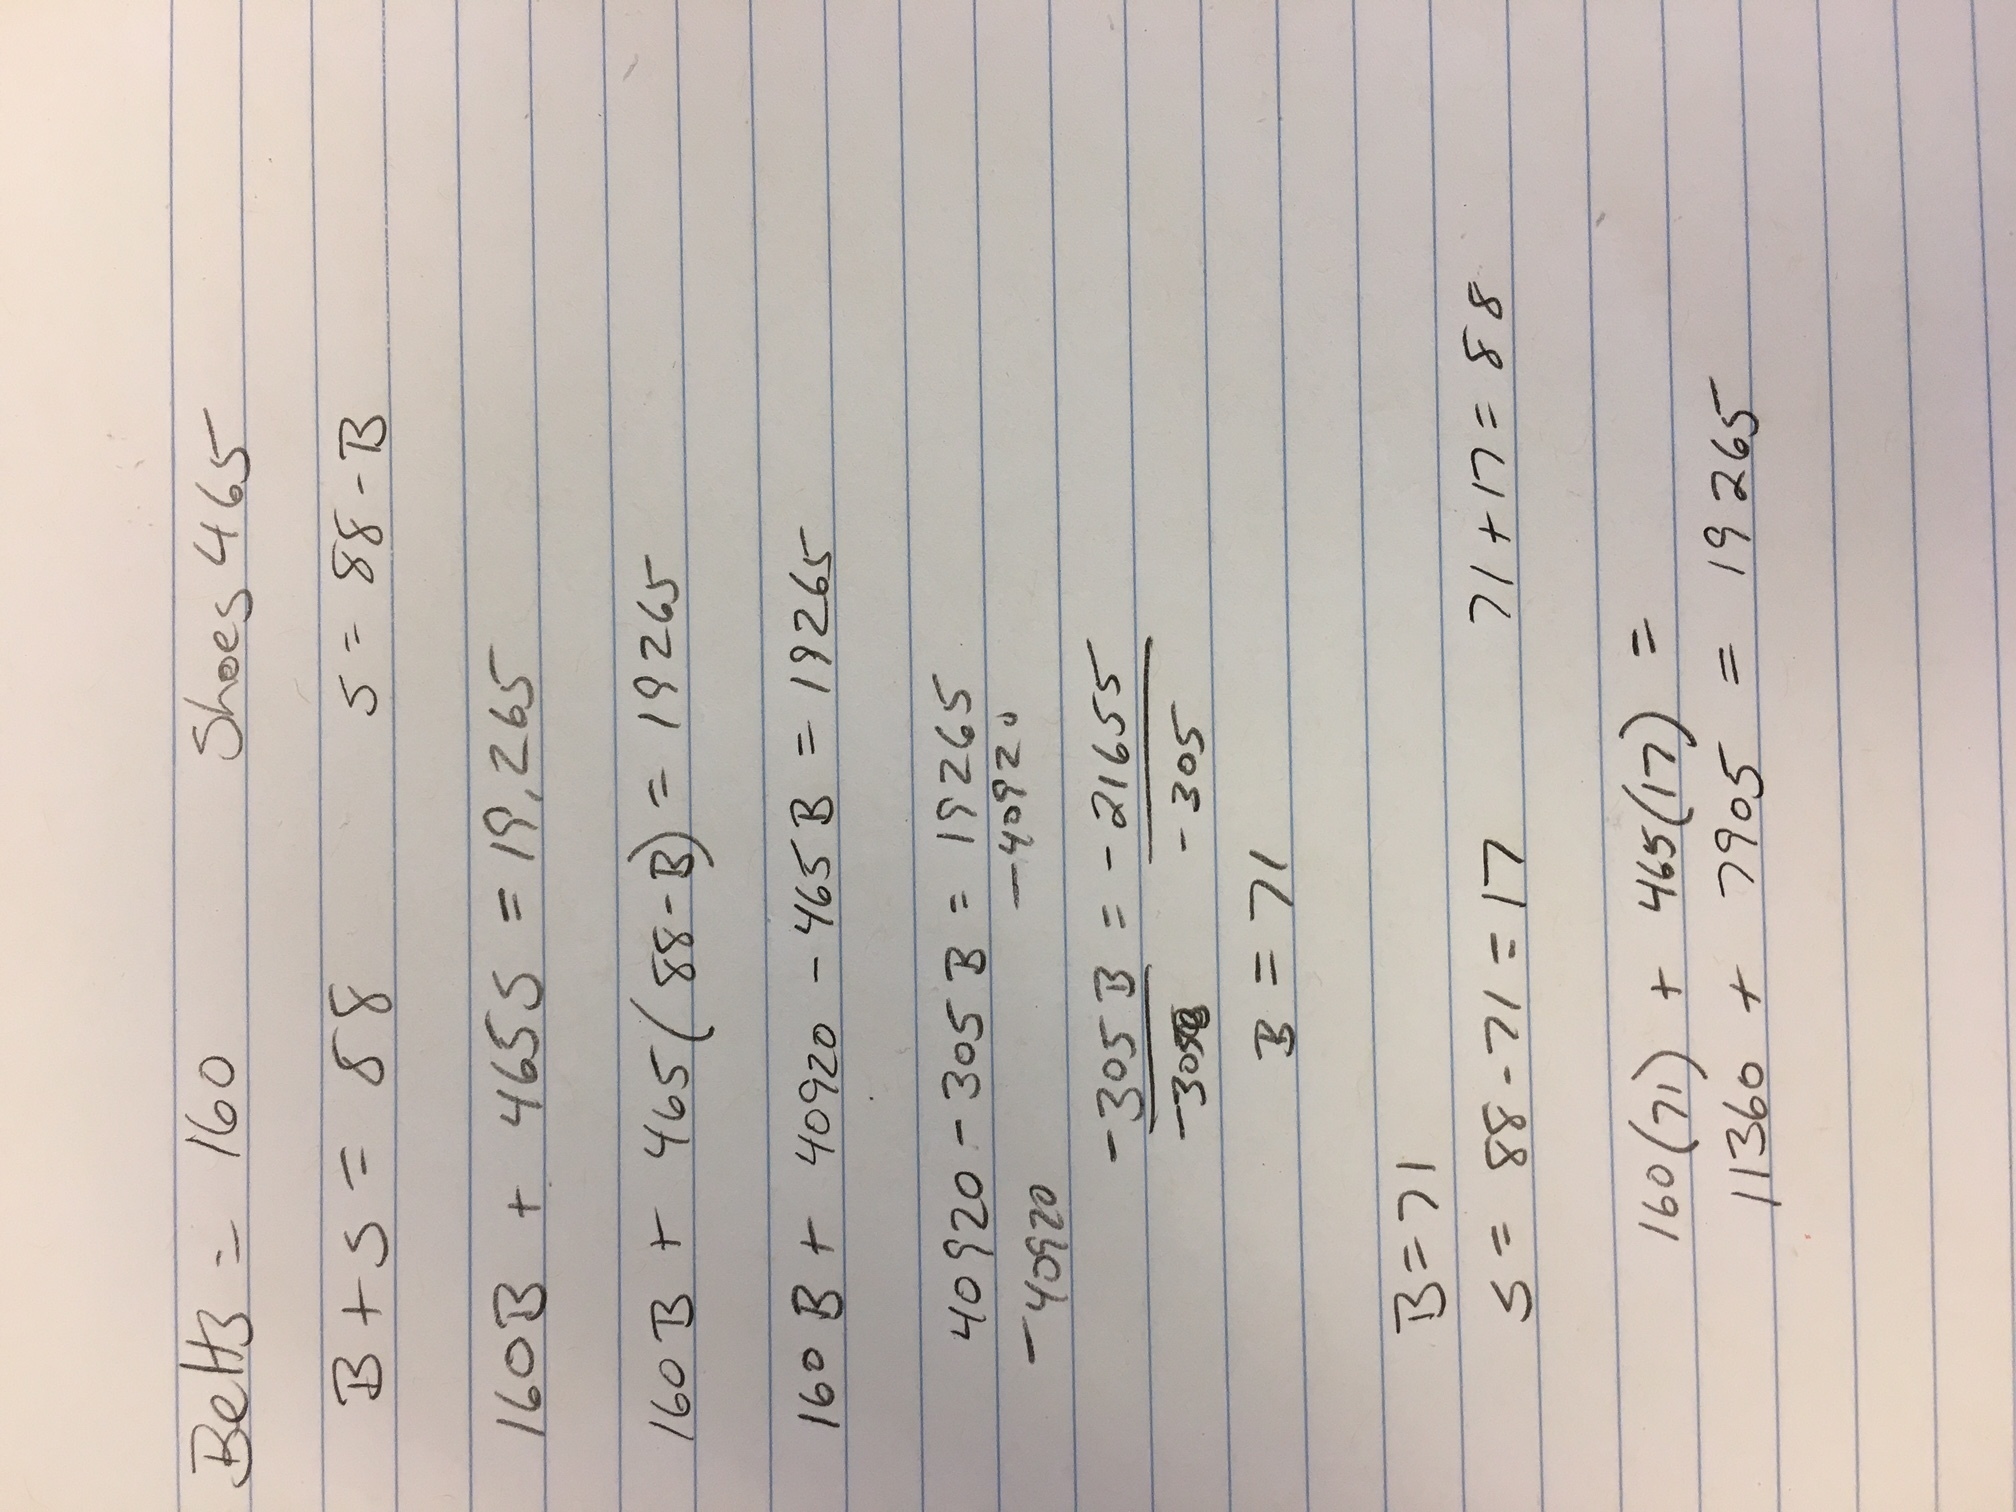 Belts = 160 Shoes 465
B + S = 88 S = 88 - B
160B + 465S = 19,265
160B + 465(88-B) = 19265
160B + 40920 - 465B = 19265
40920 - 305B = 19265
-40920 -40920
-305B = -21655
-305 -305
B = 71
B = 71
S = 88 - 71 = 17 71 + 17 = 88
160(71) + 465(17) =
11360 + 7905 = 19265